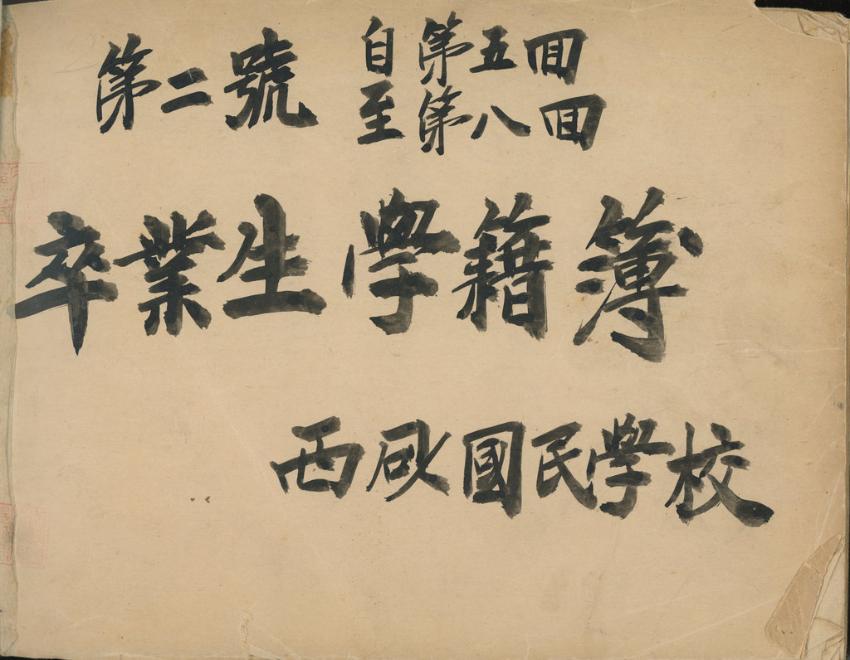 第二號
自第五回
至第八回
卒業生學籍簿
西國民學校